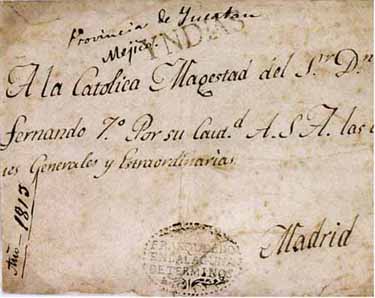 Provincia de Yucatan
Mejico
YNDIAS
A la Catolica Magestad del S.or Dn
fernando 7.o Por su Caut.d A.S.A. las
nes Generales y Extraordinarias
Madrid
Año 1813
FRANQUEADO
EN LA LAGUNA
DE TERMINOS